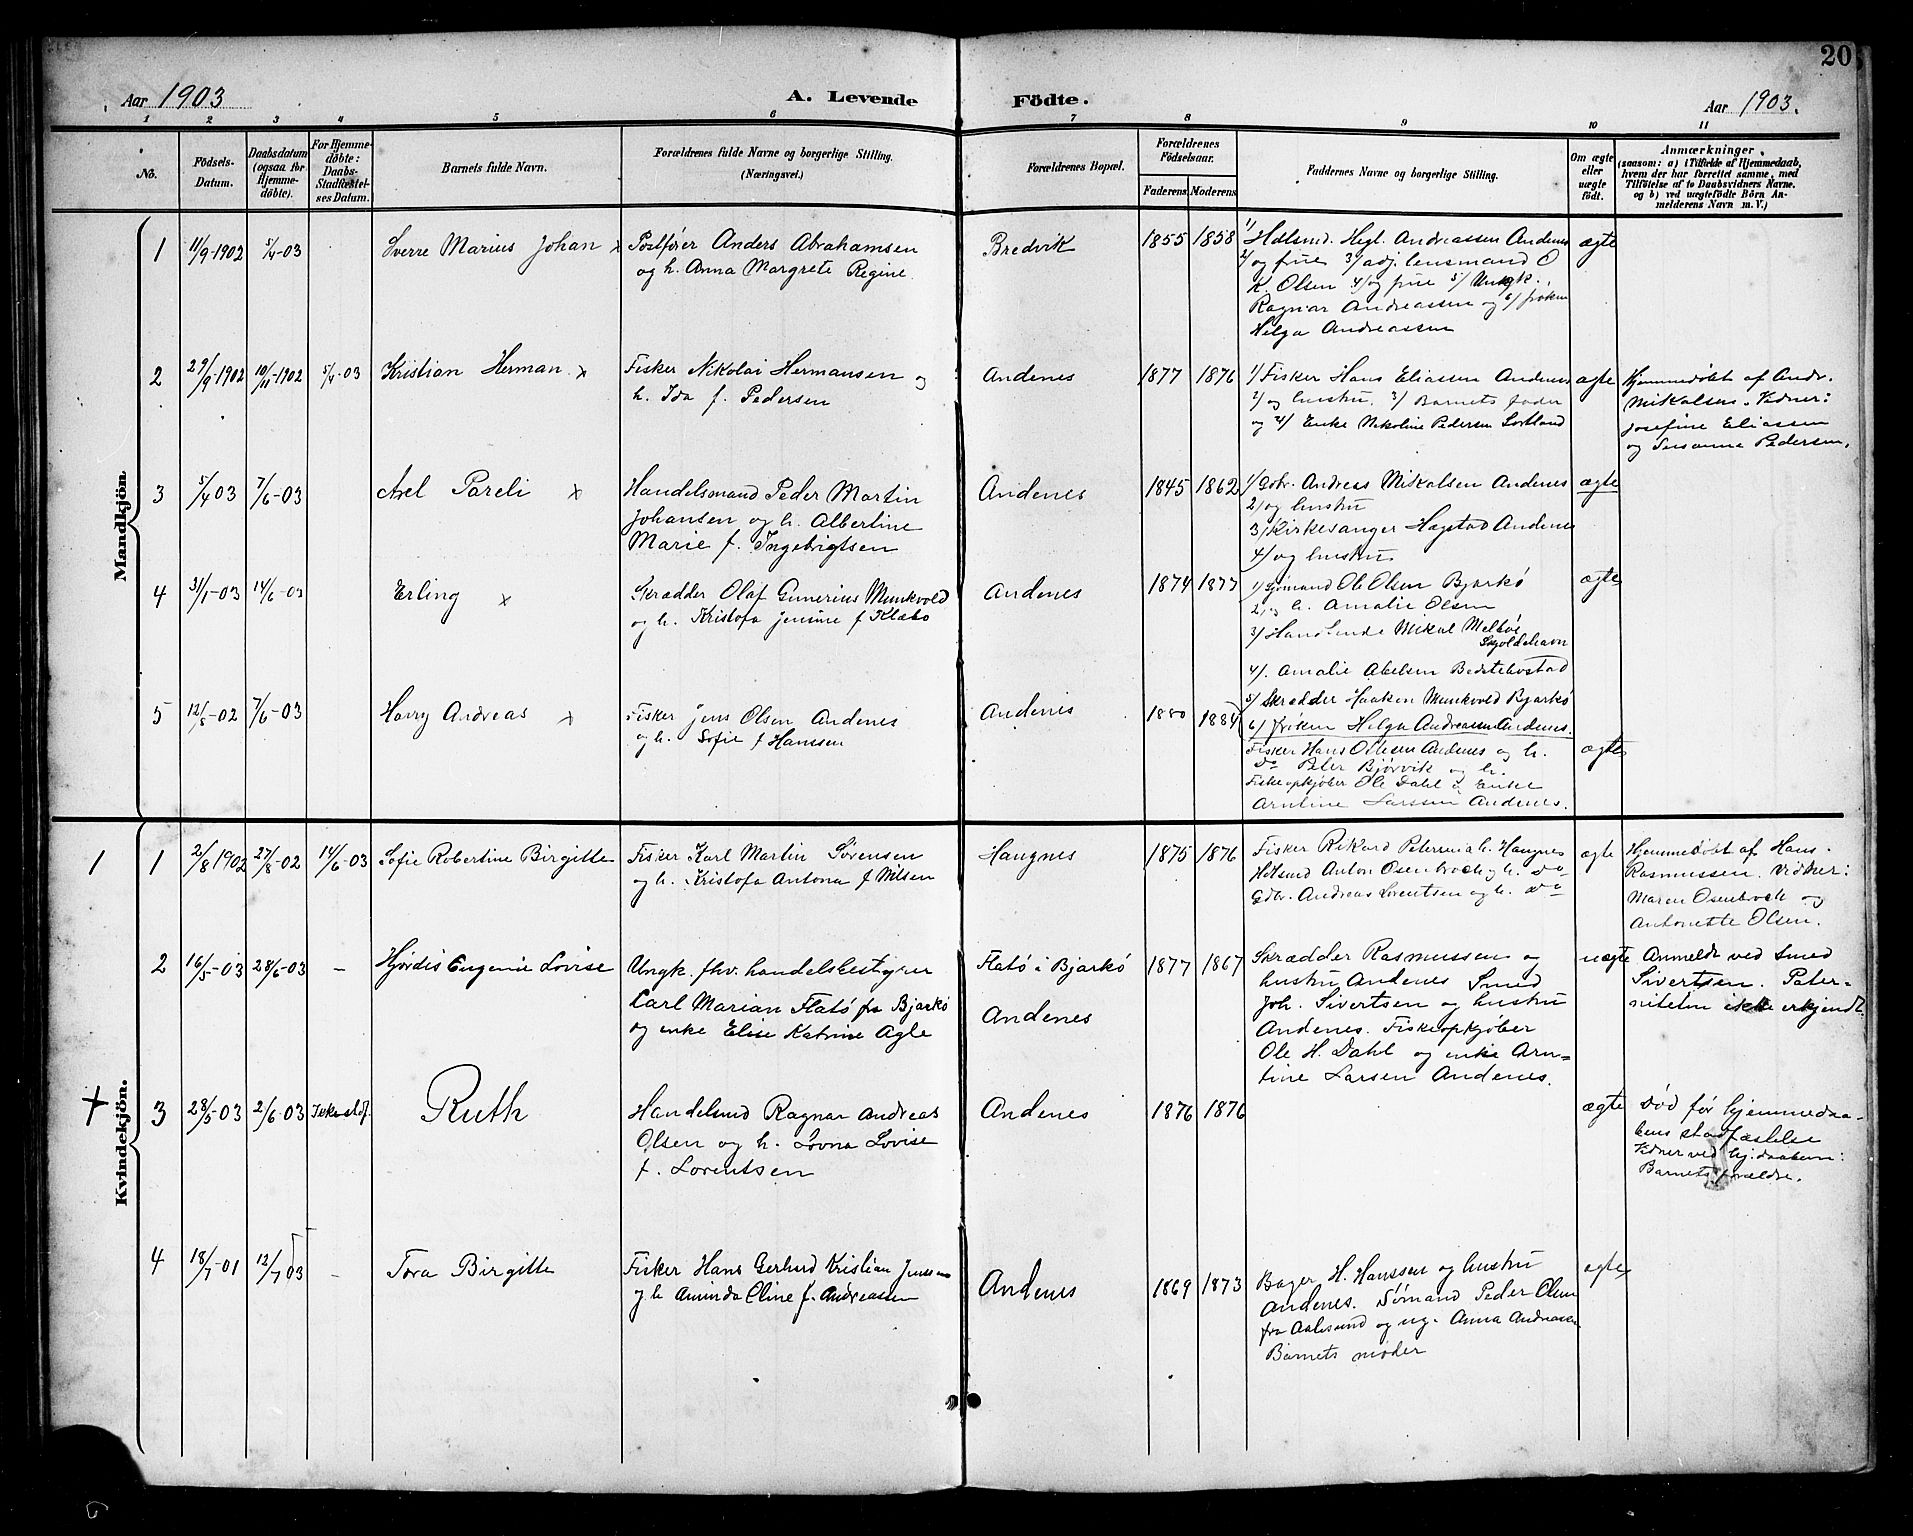 20
Aar 1903
A. Levende
Födte.
Aar 1903.
1 2 3 4 5 6 7 8 9 10 11
No.
Födsels-
Datum.
Daabsdatum
(ogsaa for
Hjemme-
döbte).
For Hjemme-
döbte:
Daabs-
Stadfæstel-
ses Datum.
Barnets fulde Navn.
Forældrenes fulde Navne og borgerlige Stilling.
(Næringsvei.)
Forældrenes Bopæl.
Forældrenes
Födselsaar.
Faderens Moderens
Faddernes Navne og borgerlige Stilling.
Om ægte
eller
uægte
födt.
Anmærkninger
(saasom: a) i Tilfælde af Hjemmedaab,
hvem der har forrettet samme, med
Tilföielse af to Daabsvidners Navne.
og b) ved uægtefödte Börn An-
melderens Navn m. V.)
Mandkjön.
1 11/9-1902 5/4-03 Sverre Marius Johan x
Postfører Anders Abrahamsen
og h. Anna Margrete Regine.
Bredvik 1855 1858
1/ Hdlsmd. Hegl. Andreassen Andenes
2/ og frue 3/ adj. lensmand O
K. Olsen 4/ og frue 5/ Ungk.
Ragnar Andreassen og 6/ frøken
Helga Andreassen
ægte
2 29/9-1902 10/11-1902 5/4-03 Kristian Herman x
Fisker Nikolai Hermansen og
h. Ida f. Pedersen
Andenes 1877 1876
1/ Fisker Hans Eliassen Andenes
2/ og hustru. 3/ Barnets fader
og 4/ Enke Nikoline Pedersen Sortland
ægte
Hjemmedøbt af Andr.
Mikalsen. Vidner:
Josefine Eliassen
og Susanna Pedersen.
3 5/4 03 7/6-03 Axel Pareli x
Handelsmand Peder Martin
Johansen og h. Albertine
Marie f. Ingebrigtsen
Andenes 1845 1862
1/ Gbr. Andreas Mikalsen Andenes
2/ og hustru
3/ Kirkesanger Hagstad Andenes
4/ og hustru
ægte
4 31/1-03 14/6-03 Erling x
Skrædder Olaf Gunerius Munkvold
og h. Kristofa Jensine f Klæbo
Andenes 1874 1877
1/ Sjømand Ole Olsen Bjarkö
2/ og h. Amalie Olsen
3/ Handlende Mikal Melbøe
Skjoldehavn
4/. Amalie Abelsen
5/ Skrædder Haaken Munkvold Bjarkö
6/ Frøken Helga Andreassen Andenes.
ægte
5 12/5-02 7/6-03 Harry Andreas x
Fisker Jens Olsen Andenes
og h. Sofie f Hanssen
Andenes 1880 1884
Fisker Hans Olsen Andenes og h.
Do Peter Bjørvik og h.
Fiskeopkjøber Ole Dahl & Enke
Arntine Larssen Andenes.
ægte
Kvindekjön.
1 1 2/8 1902 27/8-02 14/6-03 Sofie Robertine Birgitte
Fisker Karl Martin Sørensen
og h. Kristofa Antona f Nilsen
Haugnes 1875 1876
Fisker Rikard Petersen & h. Haugnes
Hdlsmd Anton Osenbroch og h. Do
Gdbr. Andreas Lorentsen og h. Do
ægte
Hjemmedöbt af Hans
Rasmussen. Vidner:
Maren Osenbroch og
Antonette Olsen.
2 16/5-03 28/6-03 - Hjørdis Eugenie Lovise
Ungk. fhv. handelsbestyrer
Carl Marian Flatö fra Bjarkö
og enke Elise Katrine Agle
Flatö i Bjarkö
Andenes
1877 1867
Skrædder Rasmussen og
hustru Andenes Smed
Joh. Sivertsen og hustru
Andenes. Fiskeopkjøber
Ole H. Dahl og enke Arn-
tine Larsen Andenes.
uægte
Anmeldt ved Smed
Sivertsen. Pater-
niteten ikke erkjendt.
+ 3 28/5-03 2/6 03 Ikke stdf. Ruth
Handelsmd Ragnar Andreas
Olsen og h. Lovna Lovise
f. Lorentsen
Andenes 1876 1876
ægte
Død før hjemmedaa-
bens stadfæstelse
Vidner ved hj.daaben:
Barnets forældre.
4 18/7-01 12/7 03 - Tora Birgitte
Fisker Hans Gerhard Kristian Jenssen
og h Aminda Eline f. Andreassen
Andenes 1869 1873
Bager H. Hanssen og hustru
Andenes. Sømand Peder Olsen
fra Aalesund og ug. Anna Andreassen
Barnets moder
ægte